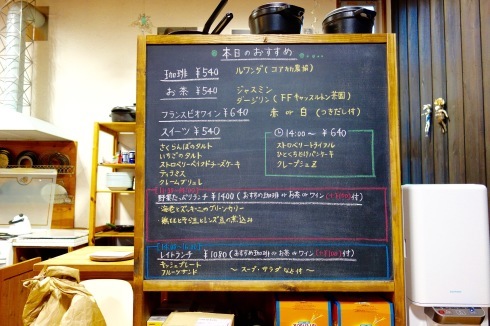 本日のおすすめ
珈琲 ¥540 ルワンダ(コアカカ農協)
お茶 ¥540 ジャスミン
ダージリン(FFキャッスルトン茶園)
フランスビオワイン ¥640 赤 or 白(つきだし付)
スイーツ ¥540
さくらんぼのタルト
いちごのタルト
ストロベリーベイクドチーズケーキ
ティラミス
クレームブリュレ
14:00〜 ¥640
ストロベリートライフル
ひとくちだけパンケーキ
クレープシュゼ
野菜たっぷりランチ ¥1400(おすすめ珈琲 or お茶 or ワイン 付)
海老とズッキーニのグリーンカリー
レイトランチ ¥1080(おすすめ珈琲 or お茶 or ワイン 付)
キッシュプレート
フルーツサンド
〜スープ・サラダ 付〜